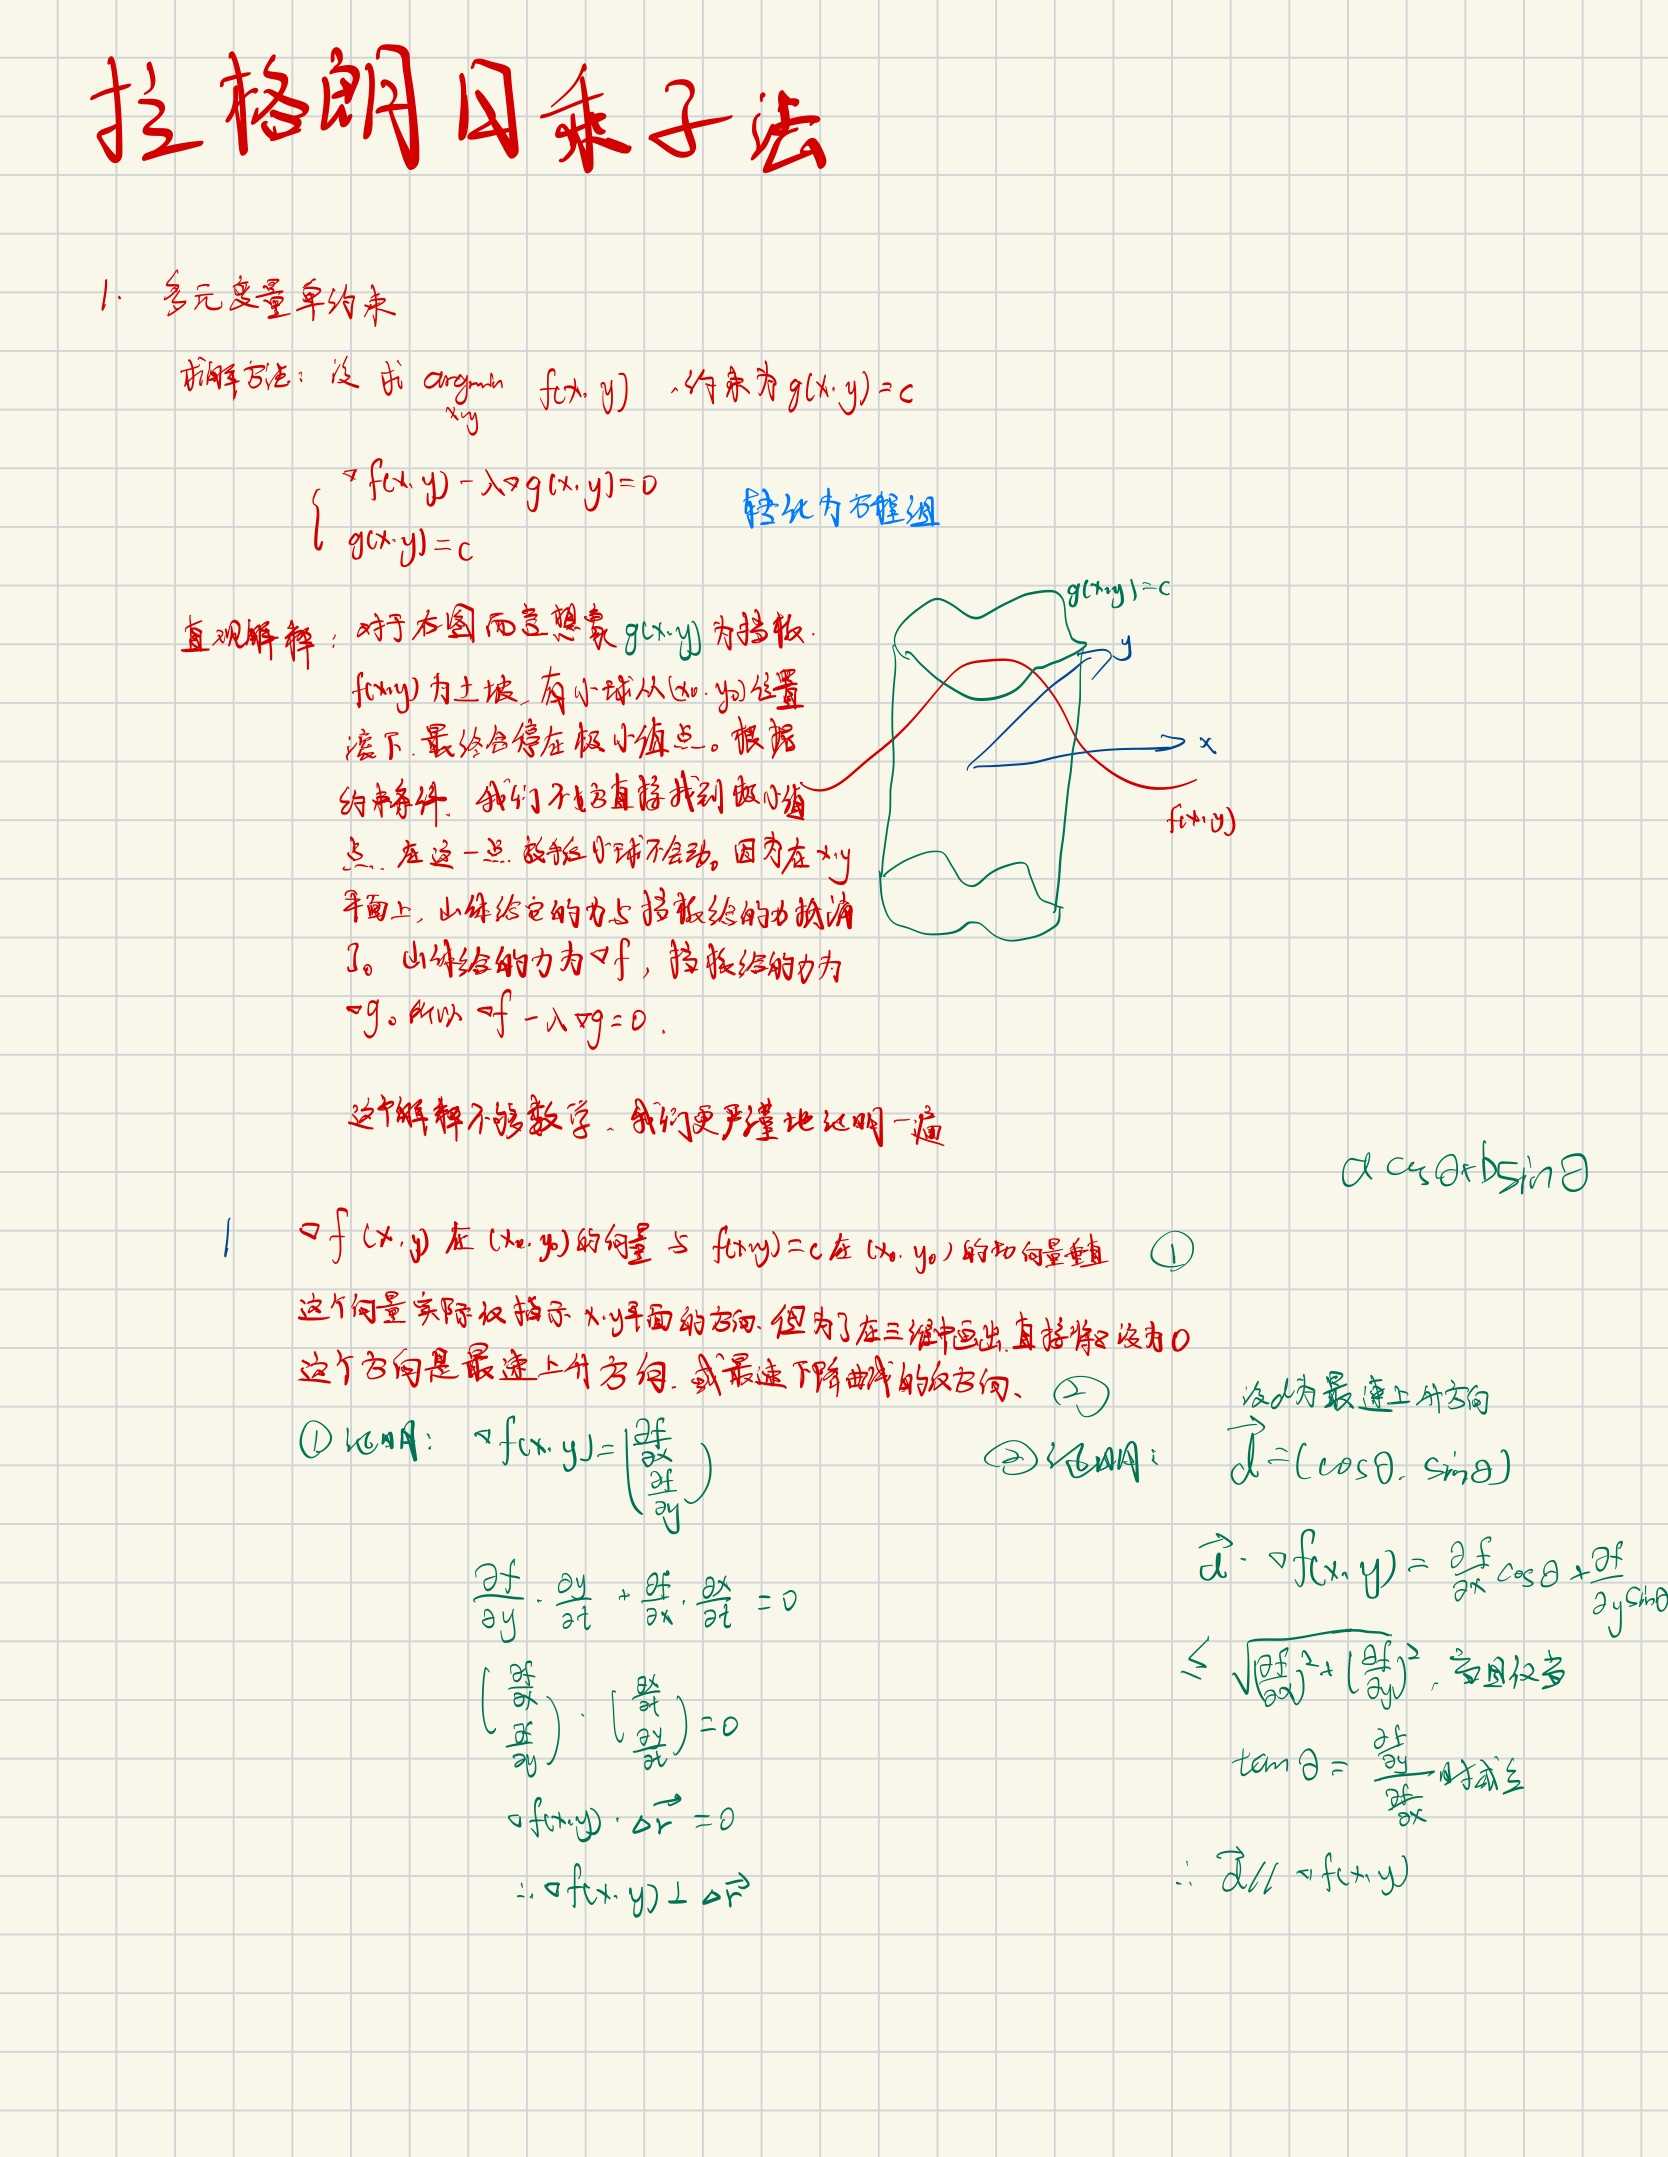 拉格朗日乘子法
1. 多元变量单约束
求解方法：设 求 argmin x,y f(x,y)，约束为 g(x,y)=c
{ ∇f(x,y)-λ∇g(x,y)=0
g(x,y)=c
转化为方程组
g(x,y)=c
y
x
f(x,y)
直观解释：对于右图而言想象 g(x,y) 为挡板.
f(x,y) 为土坡，有小球从(x₀,y₀)位置
滚下，最终会停在极小值点。根据
约束条件，我们不妨直接找到极小值
点，在这一点 小球不会动。因为在 x,y
平面上，山体给它的力与挡板给的力抵消
了。山体给的力为∇f，挡板给的力为
∇g。所以 ∇f-λ∇g=0.
这个解释不够数学，我们更严谨地证明一遍
a cosθ+bsinθ
1 ∇f(x,y) 在 (x₀,y₀)的向量与 f(x,y)=c 在 (x₀,y₀)的切向量垂直 ①
这个向量实际仅指示 x,y平面的方向，但为了在三维中画出，直接将z设为0
这个方向是最速上升方向，或最速下降曲线的反方向、②
①证明： ∇f(x,y)=(∂f/∂x ∂f/∂y)
∂f/∂y · ∂y/∂t + ∂f/∂x · ∂x/∂t = 0
(∂f/∂x ∂f/∂y) · (∂x/∂t ∂y/∂t) = 0
∇f(x,y) · Δr⃗ = 0
∴ ∇f(x,y) ⊥ Δr⃗
设d为最速上升方向
②证明： d⃗=(cosθ, sinθ)
d⃗ · ∇f(x,y) = ∂f/∂x cosθ + ∂f/∂y sinθ
≤ √((∂f/∂x)²+(∂f/∂y)²)，当且仅当
tanθ = (∂f/∂y)/(∂f/∂x) 时成立
∴ d⃗ // ∇f(x,y)